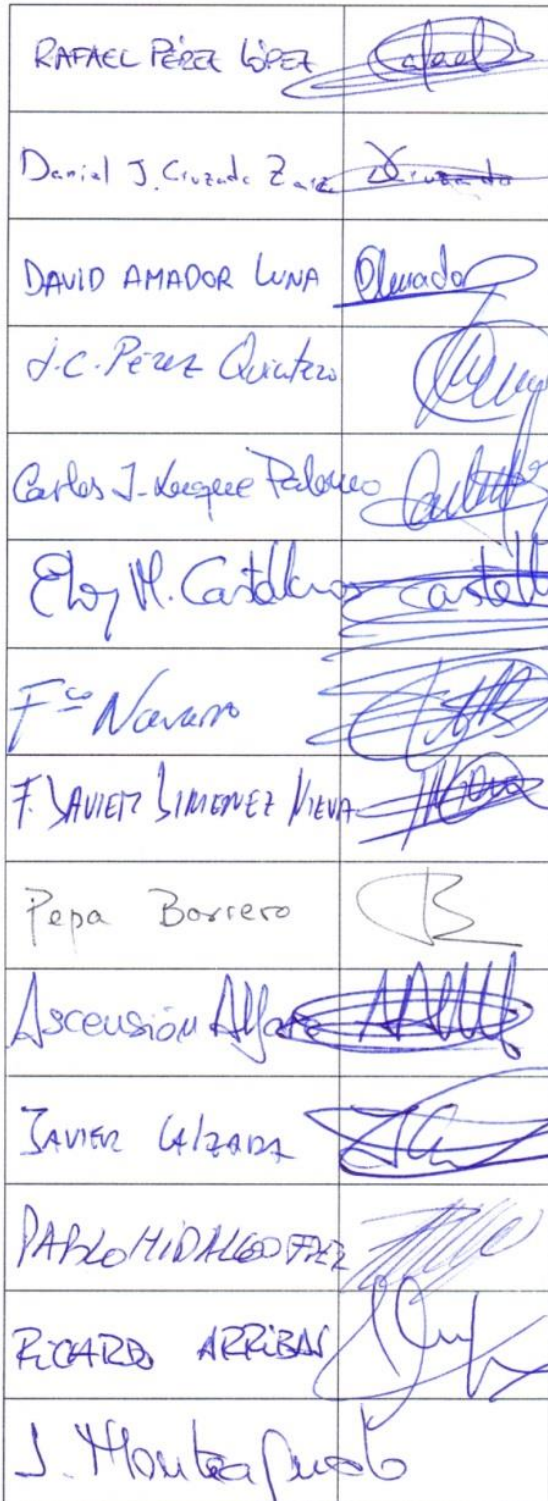 RAFAEL PÉREZ LÓPEZ Rafael
Daniel J. Cruzado Cruzado
DAVID AMADOR LUNA Amador
J.C. Pérez Quintero
Carlos J. Luque Palomo
Eloy M. Castellanos Castell
Fco Navarro
F. JAVIER JIMENEZ NIEVA
Pepa Borrero
Ascensión Alfaro
JAVIER CALZADA
PABLO HIDALGO FDEZ
RICARDO ARRIBAS
J. Monteagudo